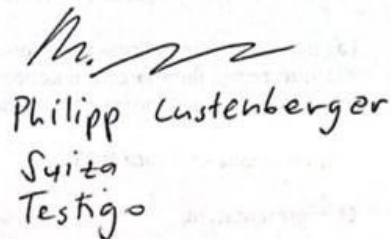 Philipp Lustenberger
Suiza
Testigo